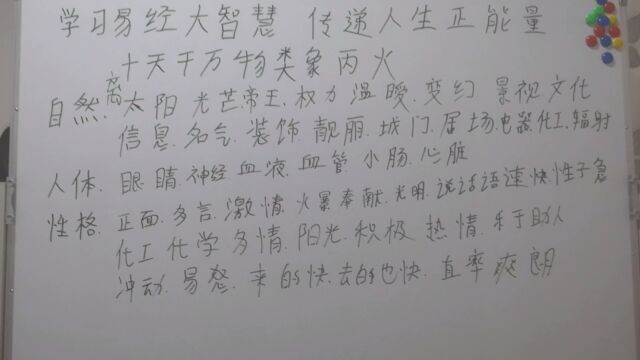 学习易经大智慧 传递人生正能量
十天干万物类象丙火
自然.离 太阳 光芒帝王.权力 温暖.变幻.景视.文化
信息.名气.装饰.靓丽.城门.居场.电器化工.辐射
人体.眼睛.神经血液.血管 小肠.心脏
性格.正面.多言.激情.火暴奉献.光明.说话语速快.性子急
化工化学多情.阳光.积极 热情.利于助人
冲动.易怒.来的快.去的也快.直率爽朗